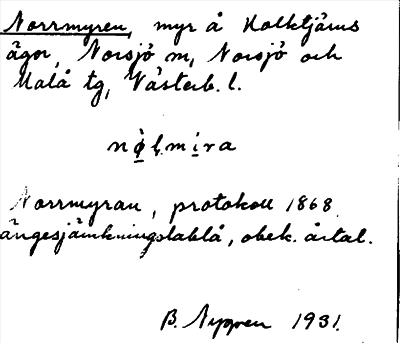 Norrmyren, myr å Holktjärns
ägor, Norsjö sn, Norsjö och
Malå tg, Västerb. l.
Norrmyran, protokoll 1868.
ängesjämkningstablå, obek. årtal.
B. Nygren 1931.